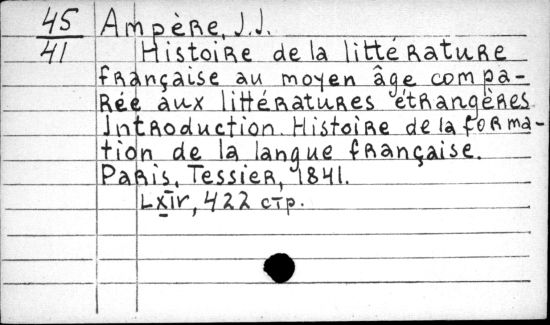 45 Ampère, J.J.
41 Histoire de la littérature
française au moyen âge compa-
rée aux littératures étrangères
Introduction. Histoire de la forma-
tion de la langue française.
Paris, Tessier, 1841.
422 стр.